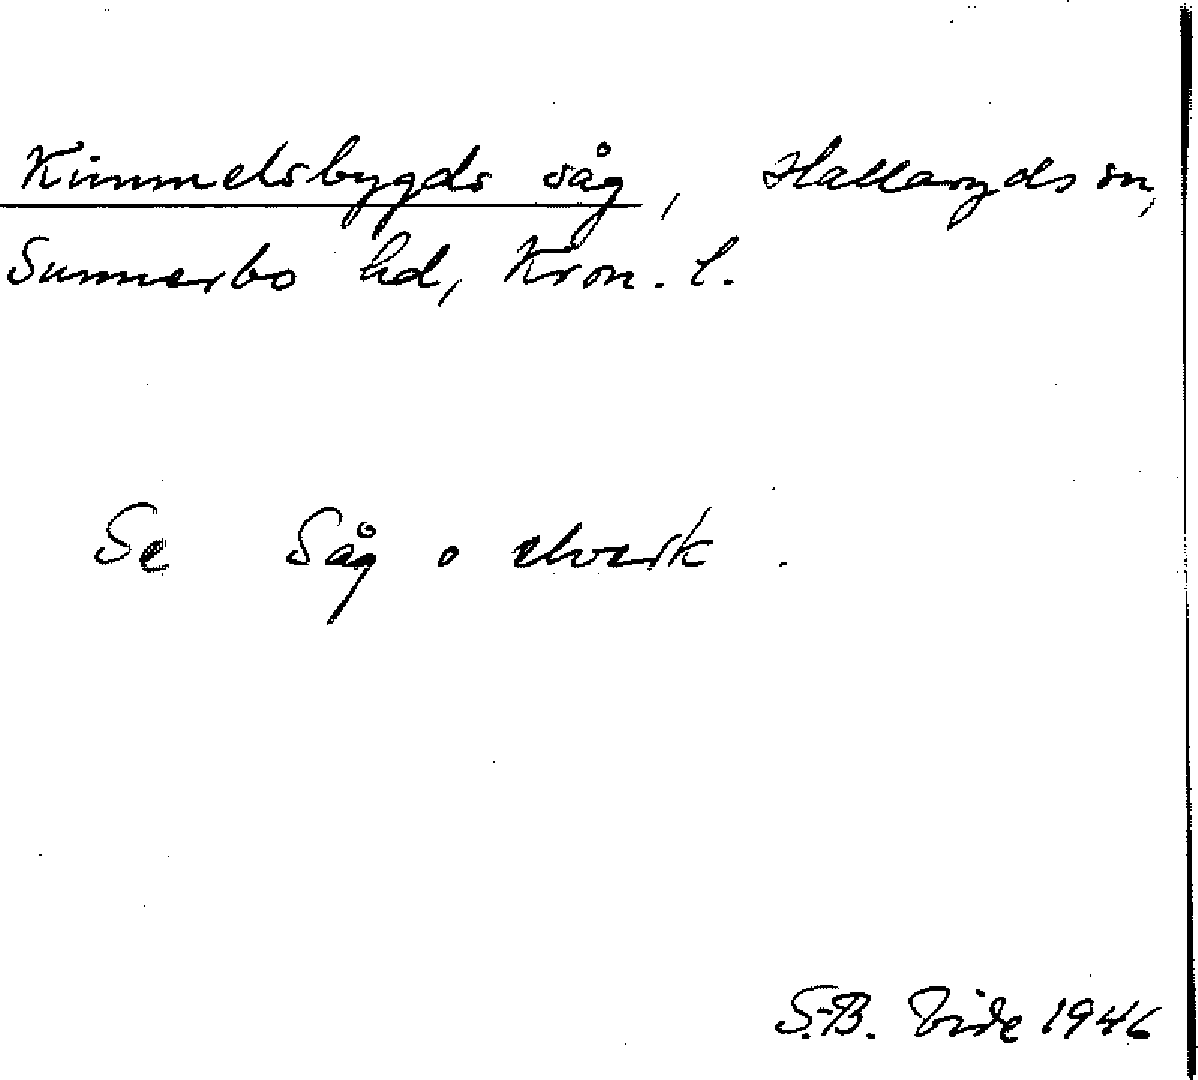 Kimmelsbygds såg, Hallaryds sn,
Sunnerbo hd, Kron. l.
Se Såg o elverk.
S.-B. Vide 1946